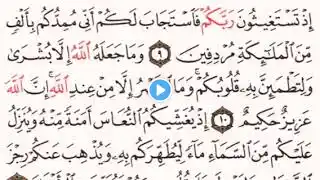 إِذْ تَسْتَغِيثُونَ رَبَّكُمْ فَاسْتَجَابَ لَكُمْ أَنِّي مُمِدُّكُم بِأَلْفٍ
مِّنَ الْمَلَٰٓئِكَةِ مُرْدِفِينَ ٩ وَمَا جَعَلَهُ اللَّهُ إِلَّا بُشْرَىٰ
وَلِتَطْمَئِنَّ بِهِۦ قُلُوبُكُمْ ۚ وَمَا النَّصْرُ إِلَّا مِنْ عِندِ اللَّهِ ۚ إِنَّ اللَّهَ
عَزِيزٌ حَكِيمٌ ١٠ إِذْ يُغَشِّيكُمُ النُّعَاسَ أَمَنَةً مِّنْهُ وَيُنَزِّلُ
عَلَيْكُم مِّنَ السَّمَآءِ مَآءً لِّيُطَهِّرَكُم بِهِۦ وَيُذْهِبَ عَنكُمْ رِجْزَ